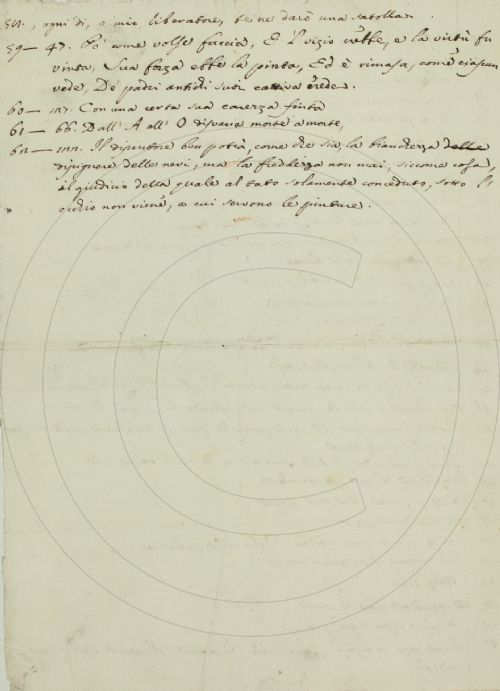 ogni dì, o mio liberatore, te ne darò una satolla.
59 — 47. Po' come volse faccia, E 'l vizio ebbe, e la virtù fu
vinta, Sua forza ebbe la pinta, Ed è rimasa, come ciascun
vede, De' padri antichi suoi cattiva erede.
60 — 117. Con una certa sua carezza finta
61 — 66. Dall' A all' O disvaria morte a morte,
62 — 111. Il dipintore ben potrà, come che sia, la bianchezza delle
dipignere delle nevi, ma la freddezza non mai, siccome cosa,
il giudicio della quale al tatto solamente conceduto, sotto l'
occhio non viene, a cui servono le pinture.